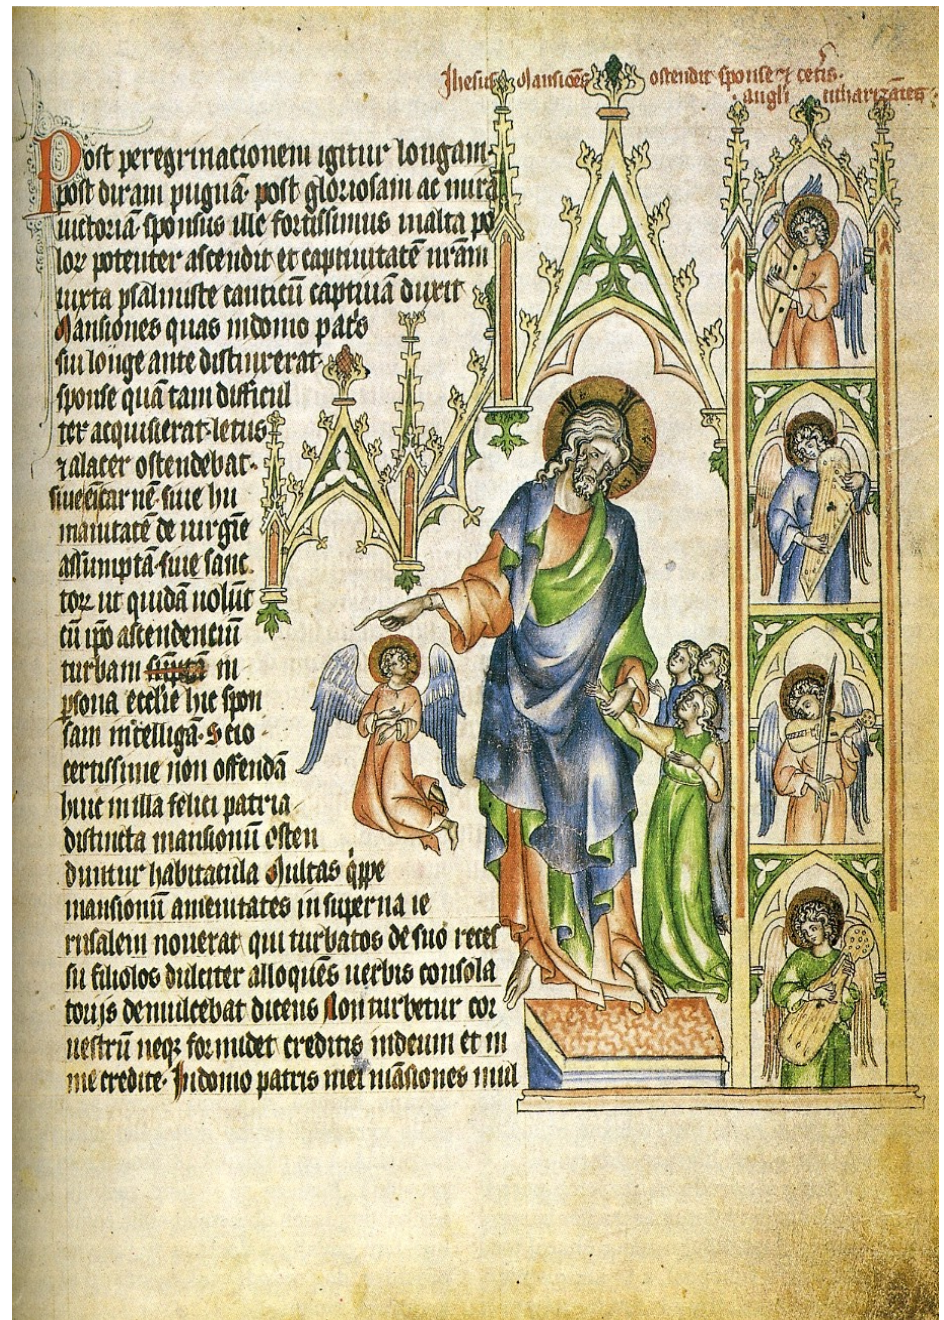 Jhesus Mansiões ostendit sponse et cetis.
angli citharizātes.
Post peregrinationem igitur longam
post diram pugnā. post gloriosam ac mirā
victoriā. sponsus ille fortissimus in alta po
loꝝ potenter ascendit et captivitatē nr̄am
iuxta psalmiste canticū captivā duxit
Mansiones quas in domo pat̄s
sui longe ante distinxerat.
sponse quā tam difficul
ter acquisierat. letus
⁊ alacer ostendebat.
sive ei carnē. sive hu
manitatē de virgīe
assumptā. sive sanc
toꝝ ut quidā volūt
cū ip̄o ascendenciū
turbam in
ꝑsona ecc̄lie hic spon
sam intelligā. Scio
certissime non offendā
huic in illa felici patria
distincta mansionū osten
duntur habitacula Multas q̇ppe
mansionū amenitates in superna ie
rusalem noverat qui turbatos de suo reces
su filiolos dulciter alloquēs verbis consola
torijs demulcebat dicens Non turbetur cor
vestrū neqꝫ formidet creditis in deum et in
me credite. In domo patris mei māsiones mul